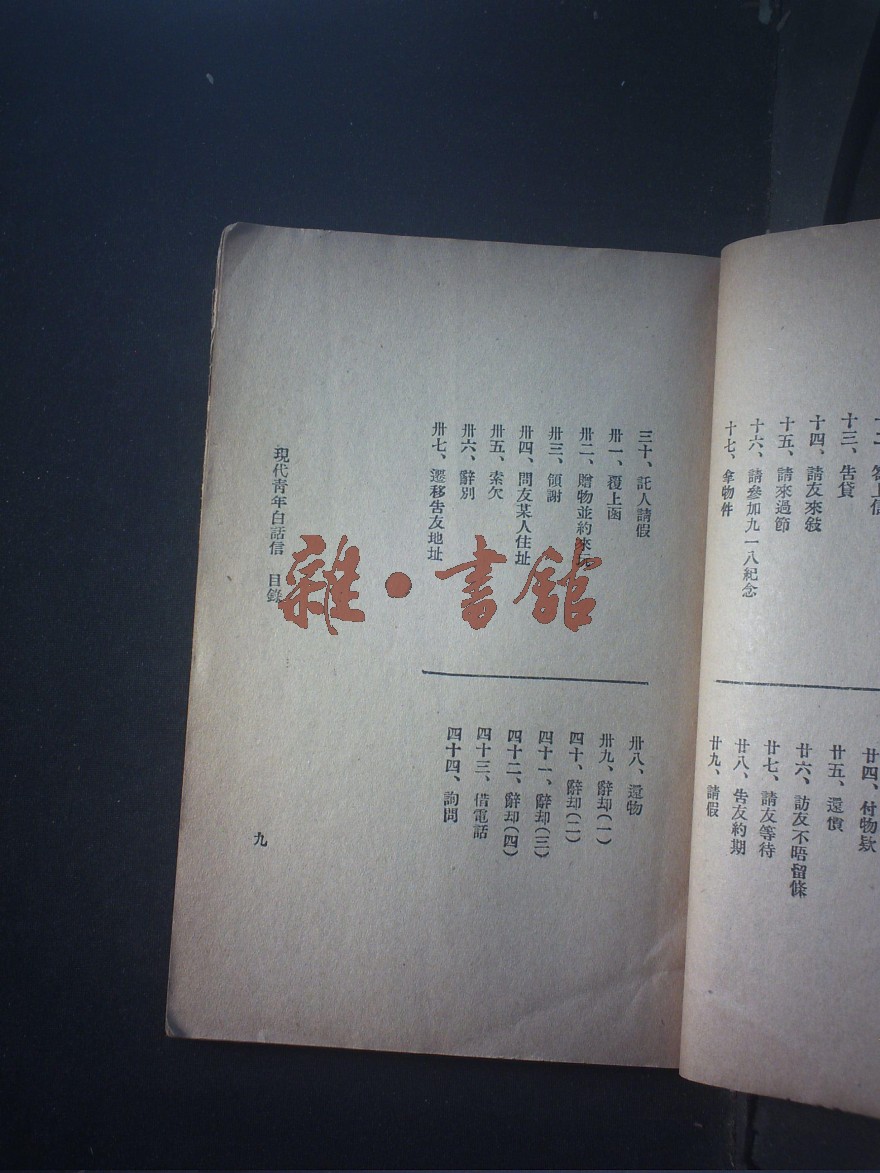 十三、告貸
十四、請友來敍
十五、請來過節
十六、請參加九一八紀念
十七、拿物件
廿四、付物欵
廿五、還價
廿六、訪友不晤留條
廿七、請友等待
廿八、告友約期
廿九、請假
三十、託人請假
卅一、覆上函
卅二、贈物並約來玩
卅三、領謝
卅四、問友某人住址
卅五、索欠
卅六、辭別
卅七、遷移告友地址
卅八、還物
卅九、辭却(一)
四十、辭却(二)
四十一、辭却(三)
四十二、辭却(四)
四十三、借電話
四十四、詢問
現代青年白話信 目錄
九
雜·書館